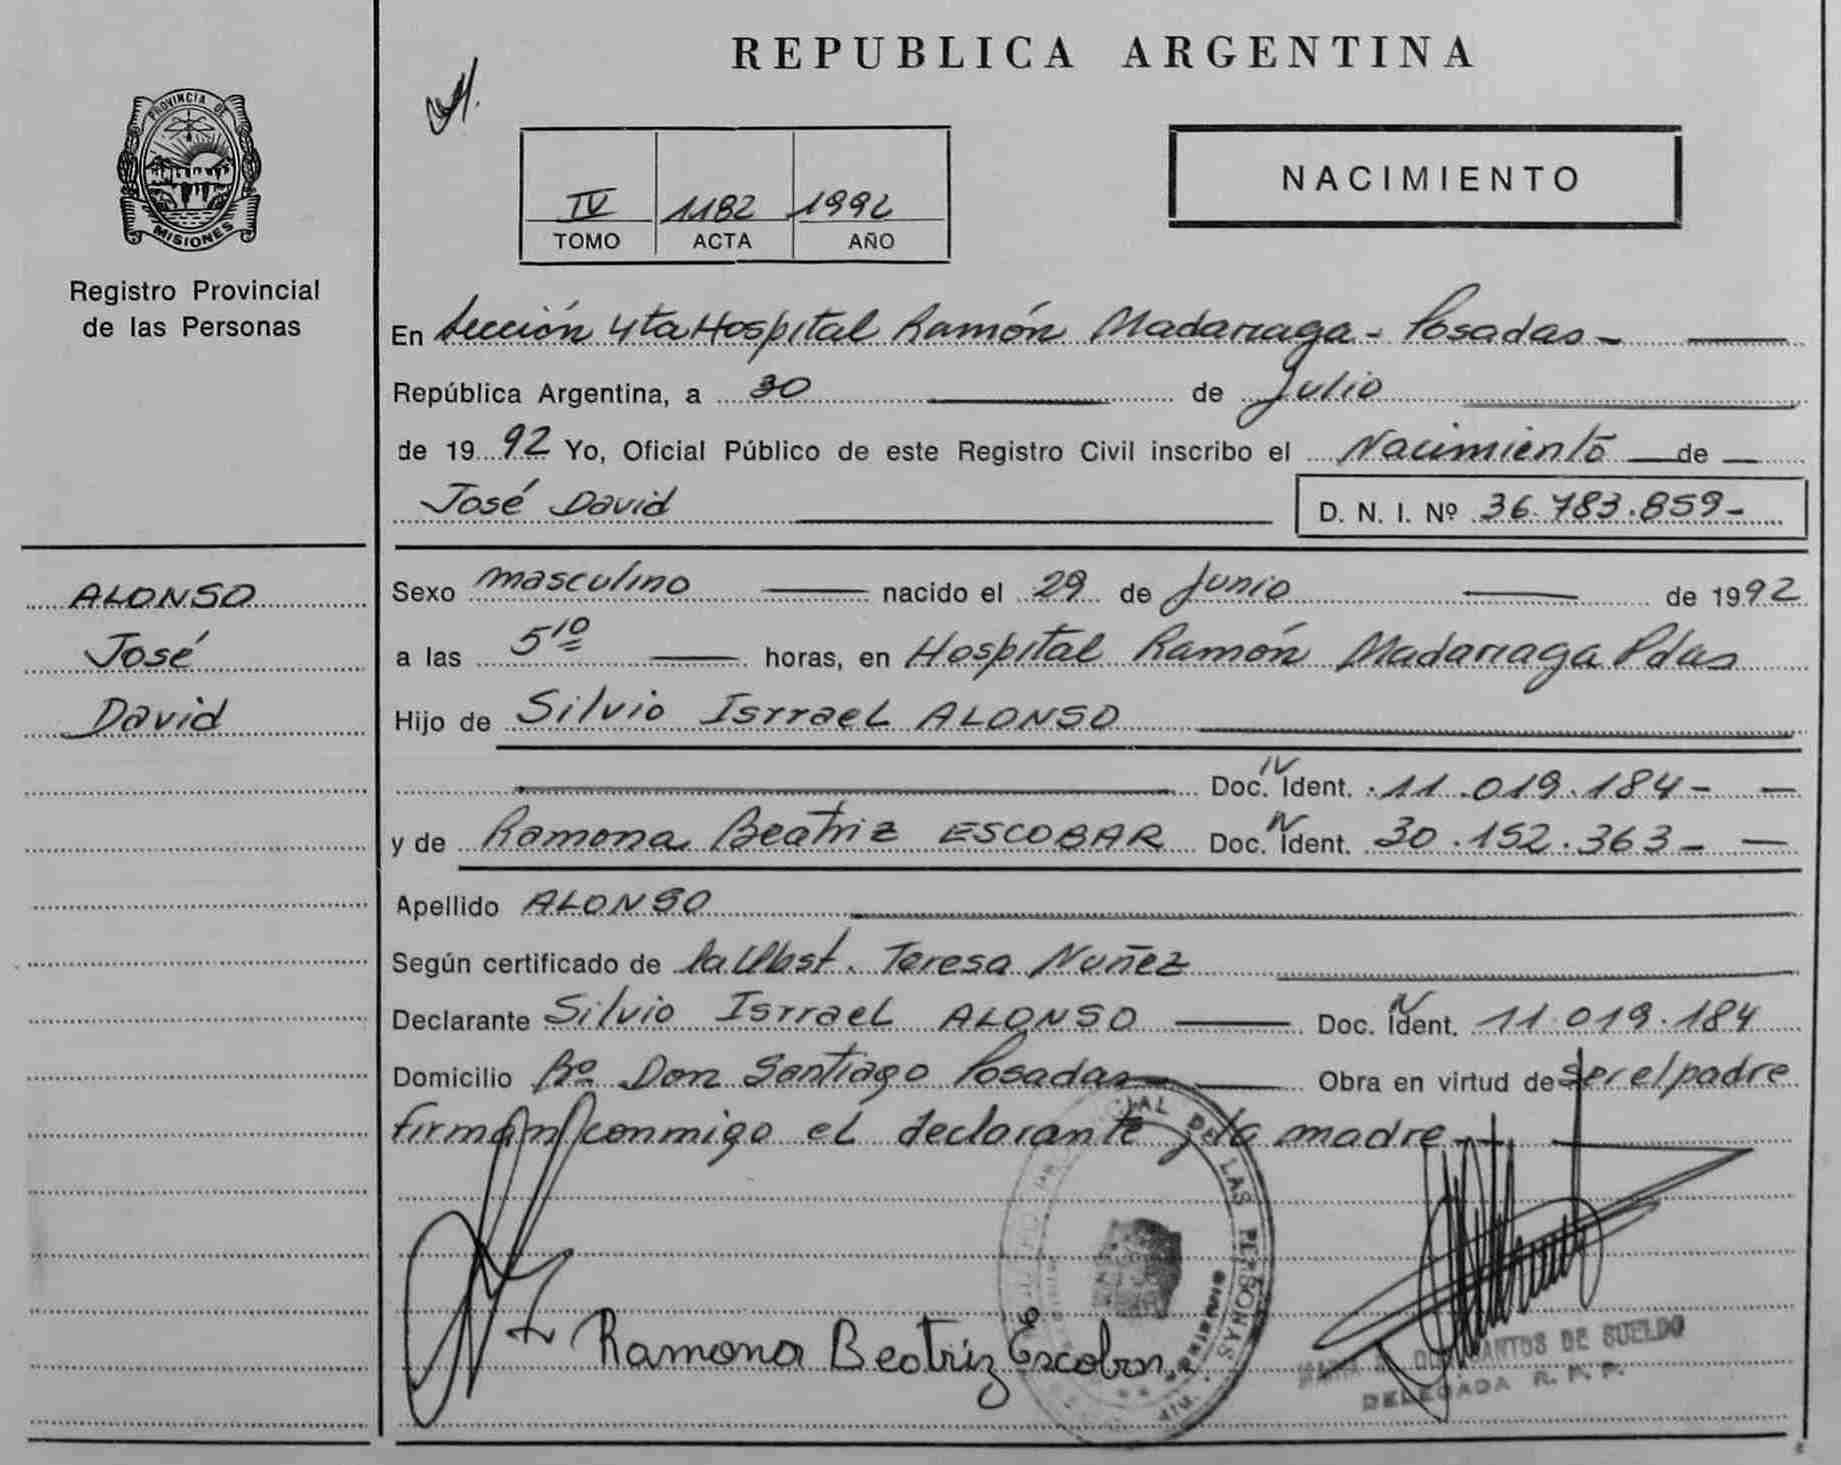 REPUBLICA ARGENTINA
PROVINCIA DE
MISIONES
Registro Provincial
de las Personas
IV 1182 1992
TOMO ACTA AÑO
NACIMIENTO
En Sección 4ta Hospital Ramón Madariaga - Posadas -
República Argentina, a 30 de Julio
de 1992 Yo, Oficial Público de este Registro Civil inscribo el Nacimiento de
José David D. N. I. Nº 36.783.859-
ALONSO
José
David
Sexo masculino nacido el 29 de Junio de 1992
a las 5 10 horas, en Hospital Ramón Madariaga Pdas
Hijo de Silvio Isrrael ALONSO
Doc. Ident. 11.019.184-
y de Ramona Beatriz ESCOBAR Doc. Ident. 30.152.363-
Apellido ALONSO
Según certificado de la Obst. Teresa Nuñez
Declarante Silvio Isrrael ALONSO Doc. Ident. 11.019.184
Domicilio Bº Don Santiago Posadas Obra en virtud de ser el padre
firman conmigo el declarante y la madre
Ramona Beatriz Escobar
DE LAS PERSONAS
SANTOS DE SUELDO
DELEGADA R. P. P.